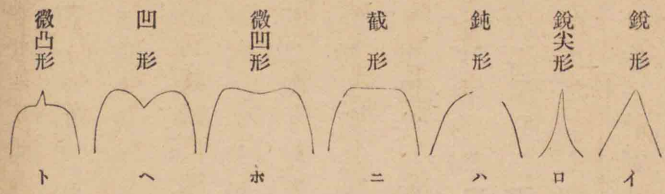 銳形
銳尖形
鈍形
截形
微凹形
凹形
微凸形
イ
ロ
ハ
ニ
ホ
ヘ
ト